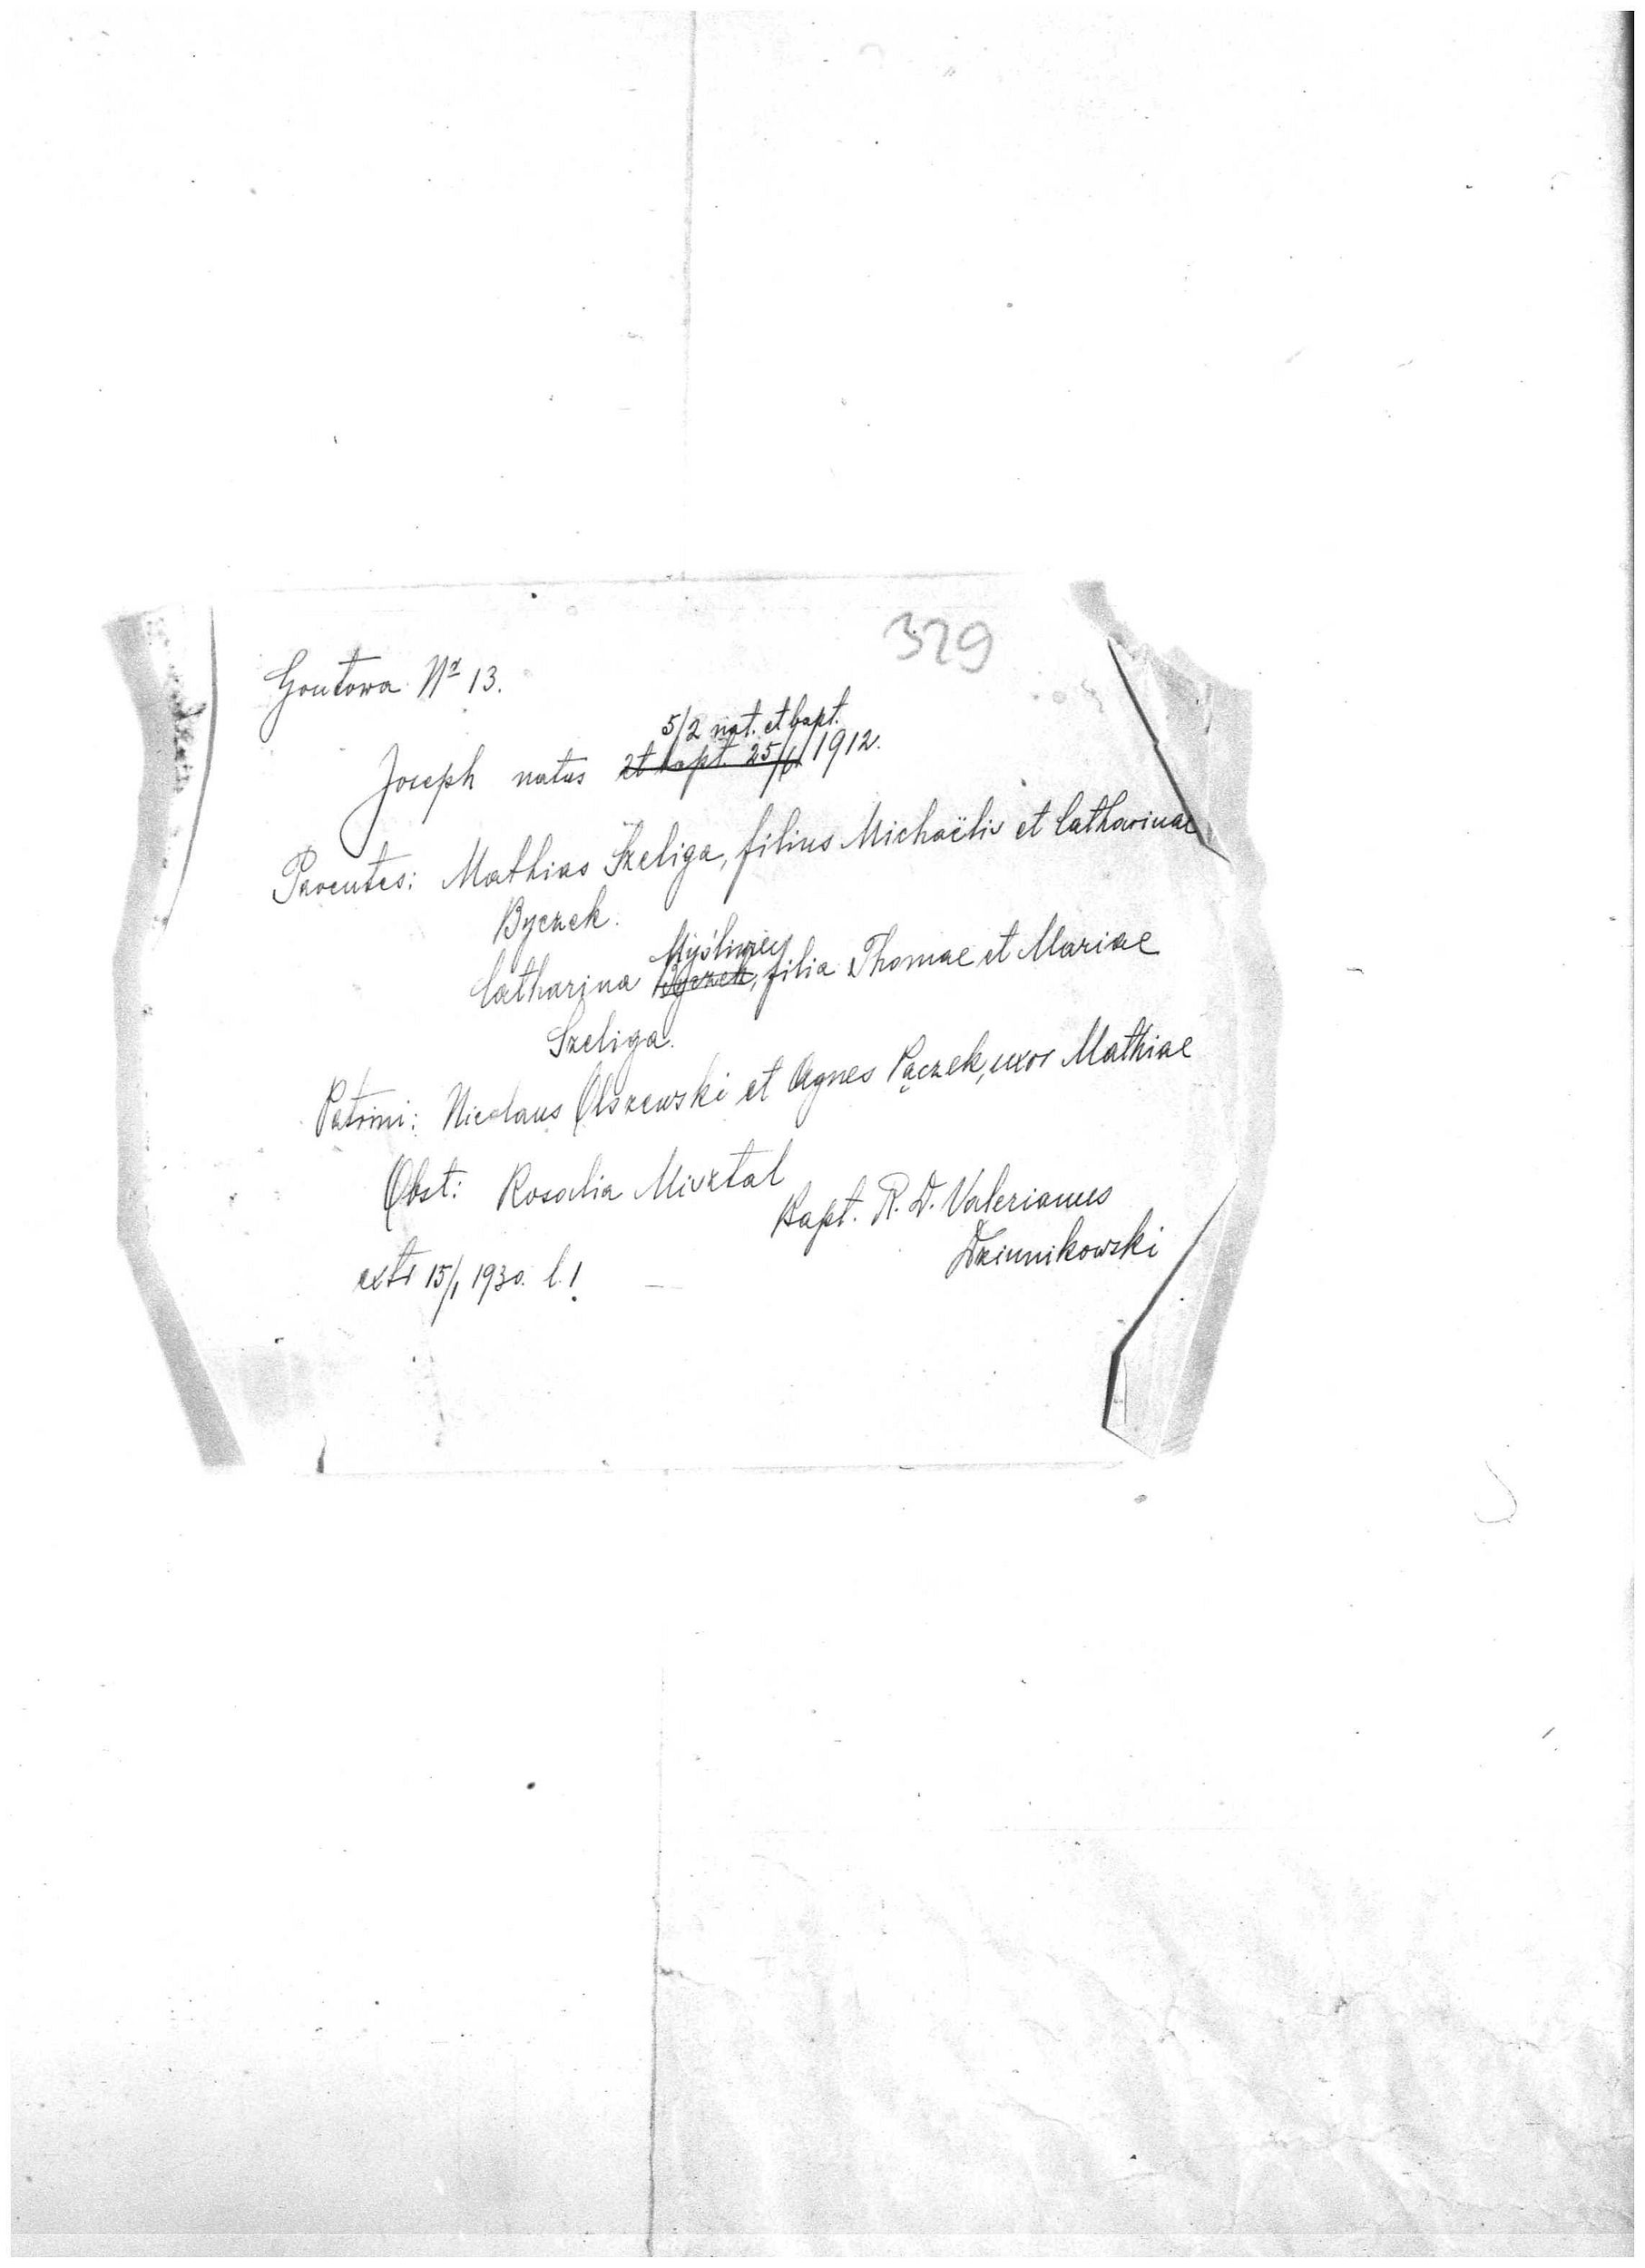 329
Goutowa No 13.
5/2 nat. et bapt.
Joseph natus et bapt. 25/6 1912.
Parentes: Mathias Szeliga, filius Michaëlis et Catharinae
Byczek.
Myśliwiey
Catharina Byczek, filia Thomae et Mariae
Szeliga.
Patrini: Nicolaus Olszewski et Agnes Pączek, uxor Mathiae
Obst: Rosalia Misztal
Bapt. R. D. Valerianus
Dziunikowski
extr 15/1 1930. l. !